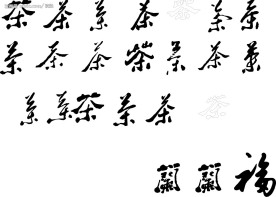 茶 茶 茶 茶 茶 茶 茶
茶 茶 茶 茶 茶 茶 茶
茶 茶 茶 茶 茶 茶
蘭 蘭 福